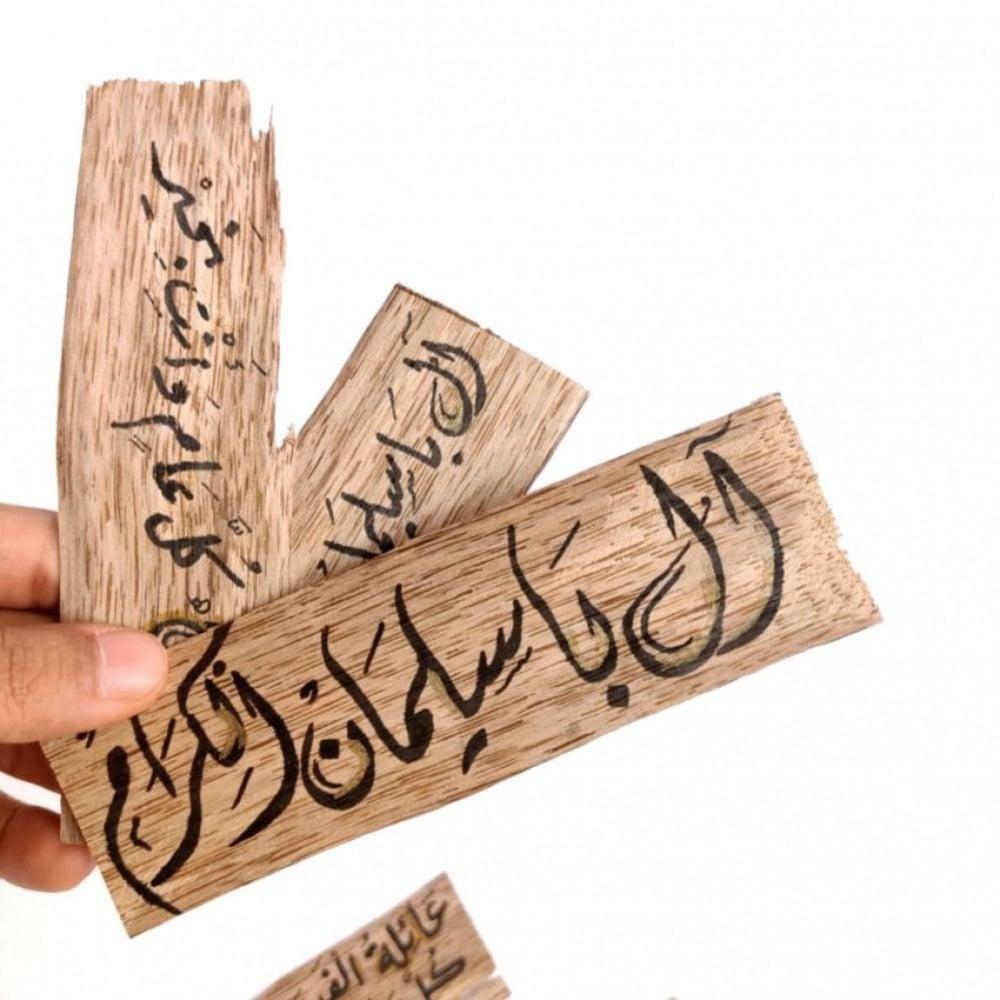 كُلُّ عَامٍ وَأَنْتِ بِخَيْرٍ
آل باسلمان
آل باسلمان الكرام
عَائِلَةُ
كُل